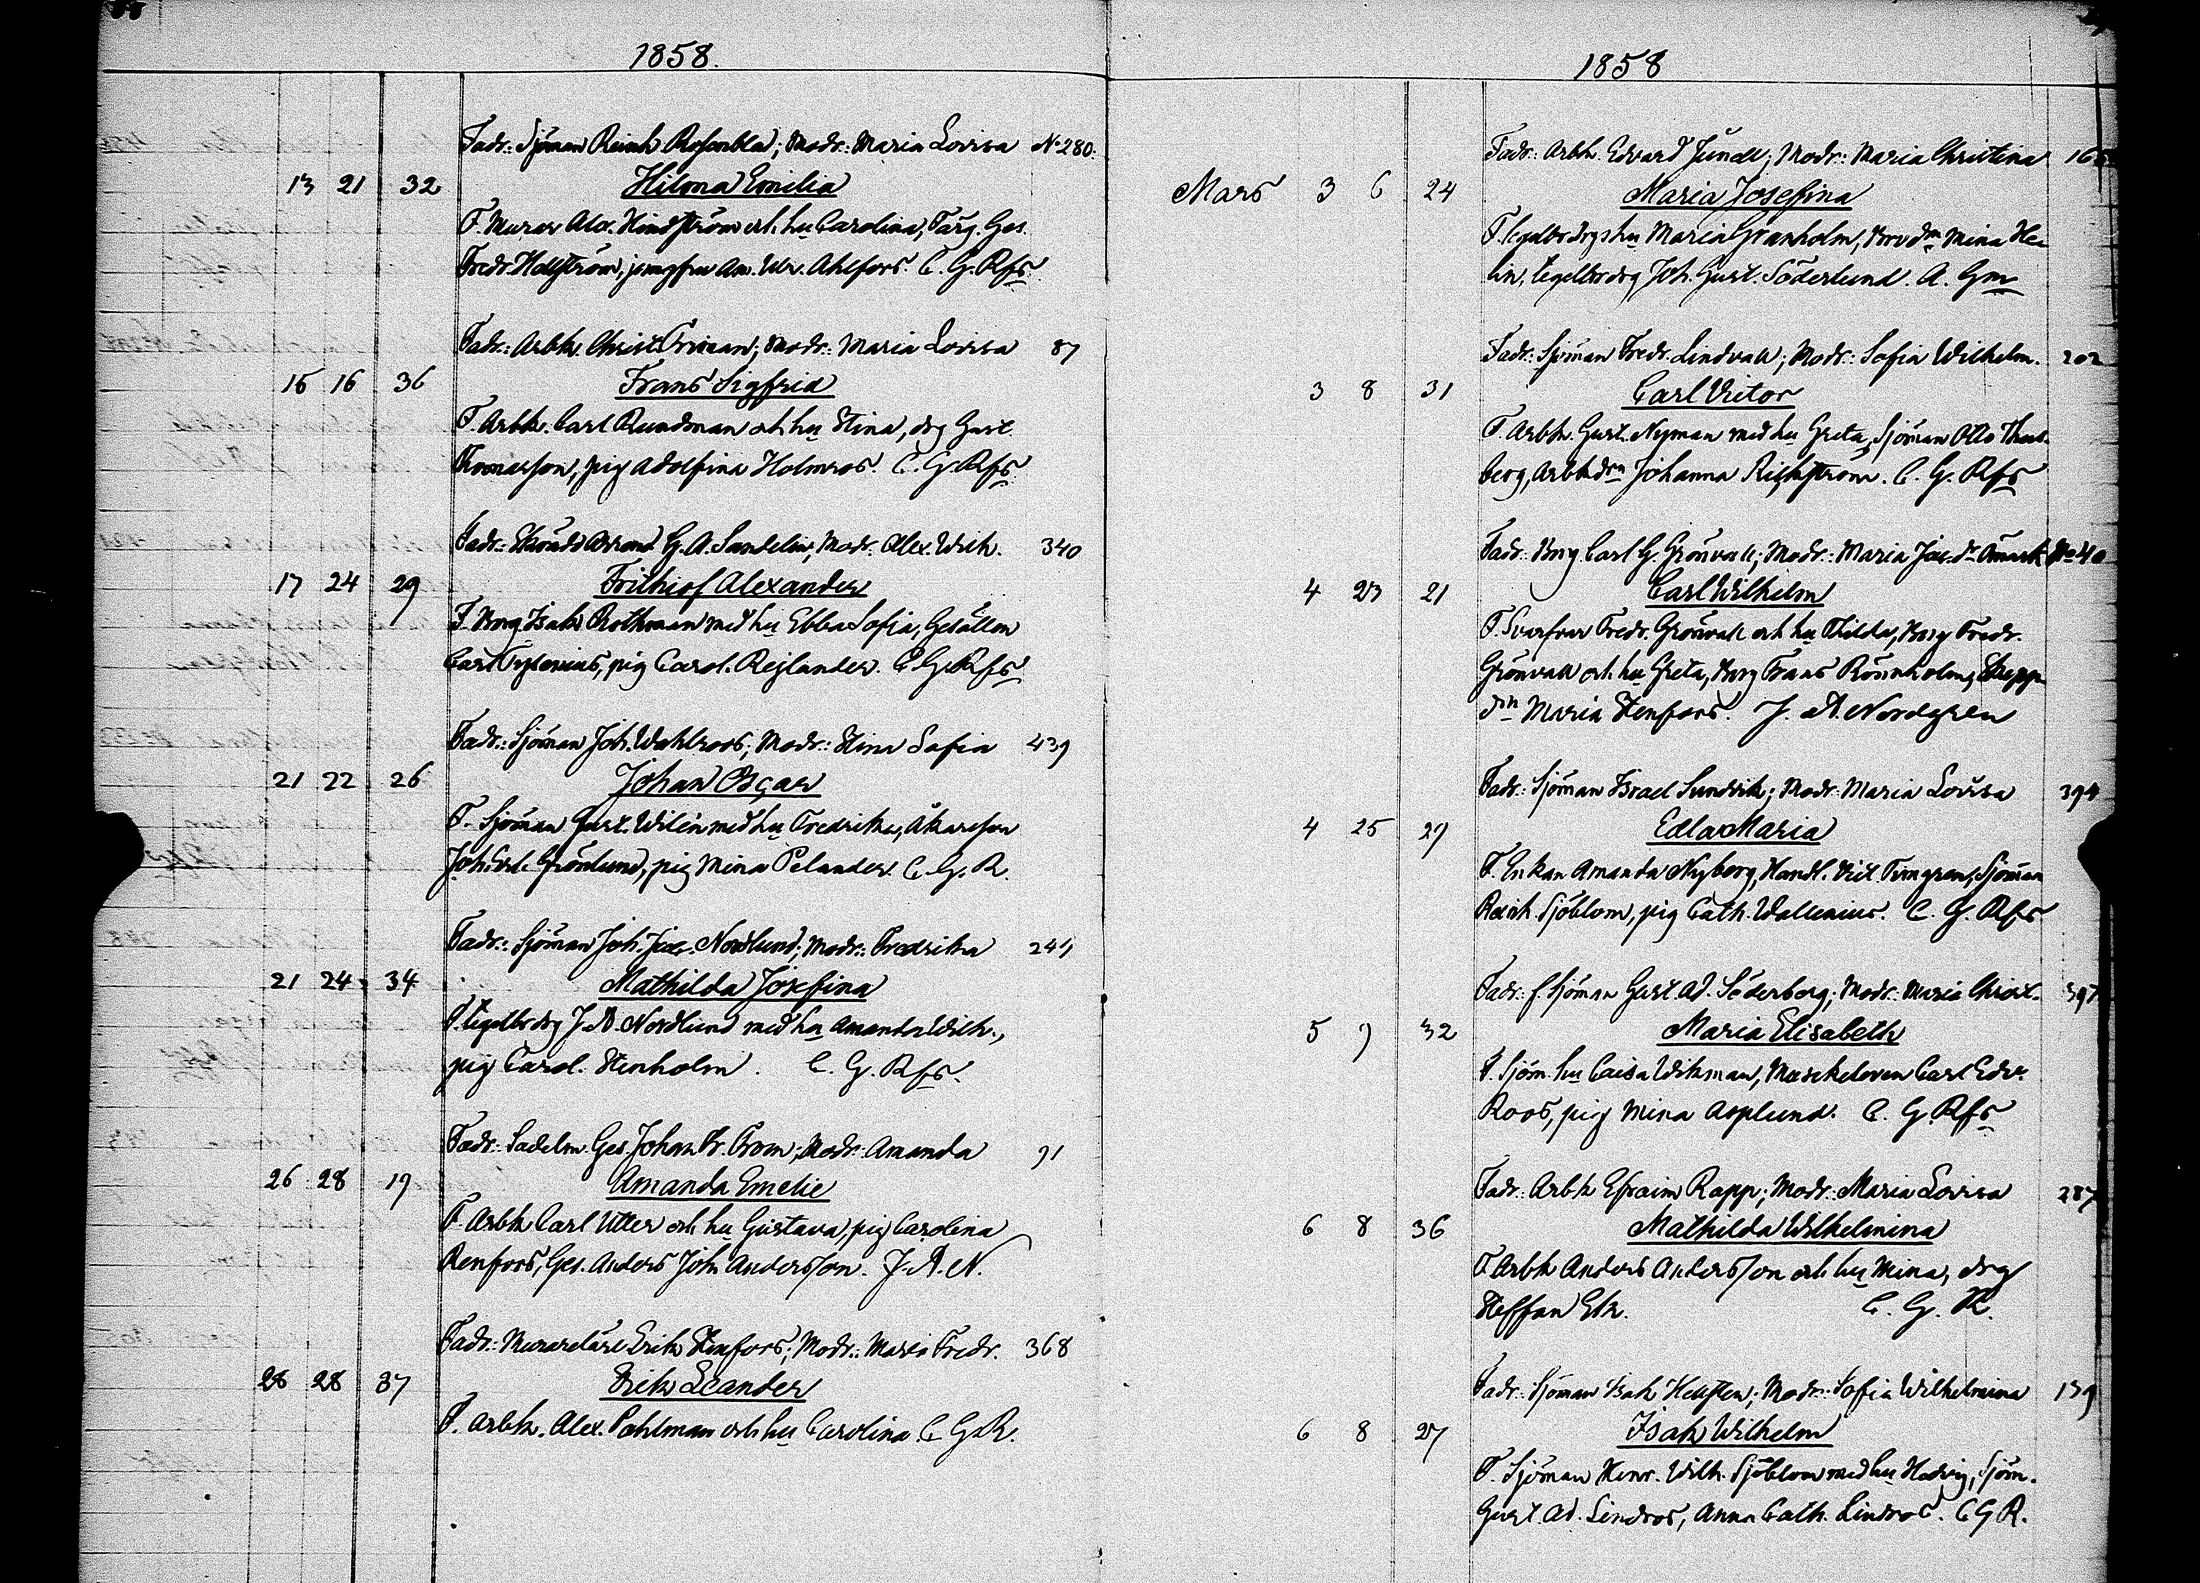 1858.
Fadr: Sjöman Reinh Rosenblad; Modr: Maria Lovisa No 280.
13 21 32 Hilma Emilia
F. Murar Alex. Hindström och hu Carolina, Färg. Ges.
Fredr. Hellström, jungfru Am. Ulr. Ahlfors. C. G. Rfs
Fadr: Arbk. Christ. Friman; Modr: Maria Lovisa 87
15 16 36 Frans Sigfrid
F. Arbk. Carl Rundman och hu Stina, drg Gust.
Thomasson, pig Adolfina Holmros. C. G. Rfs
Fadr: G. A. Sandelin, Modr. Alex. Wilh. 340
17 24 29 Frithiof Alexander
F. Borg Isak Rothman med hu Ebba Sofia, Gesällen
Carl pig Carol. Rejlander. C. G. Rfs
Fadr: Sjöman Joh. Wahlroos; Modr: Stina Sofia 439
21 22 26 Johan Oscar
F. Sjöman Gust. Wilén med hu Fredrika, Åkaresson
Joh. Grönlund, pig Mina Pelander. C. G. R.
Fadr: Sjöman Joh. Jac. Nordlund; Modr: Fredrika 241
21 24 34 Mathilda Josefina
F. Tegelbr drg J. A. Nordlund med hu Amanda Wilh.,
pig Carol. Stenholm. C. G. Rfs.
Fadr: Sadelm. Ges. Johan Fr. From; Modr: Amanda 91
26 28 19 Amanda Emelie
F. Arbk Carl Utter och hu Gustava, pig Carolina
Renfors, Ges. Anders Joh Andersson. J. A. N.
Fadr: Murarelärl Erik Stenfors; Modr: Maria Fredr. 368
26 28 37 Erik Leander
F. Arbk. Alex. Pahlman och hu Carolina. C. G. R.
1858
Fadr: Arbk. Edvard Jundt; Modr: Maria Christina
Mars 3 6 24 Maria Josefina
F. Tegelbr drgs hu Maria Granholm, Mina He-
lin, Tegelbr drg Joh. Gust. Söderlund. A. Gm
Fadr: Sjöman Fredr. Lindvall; Modr: Sofia Wilhelm. 202
3 8 31 Carl Victor
F. Arbk. Gust. Nyman med hu Greta, Sjöman Otto
berg, Arbk drn Johanna Rickström. C. G. Rfs
Fadr: Borg Carl G. Grönvall; Modr: Maria Jac. dr No 40
4 23 21 Carl Wilhelm
F. Svarfvar Fredr. Grönvall och hu Thilda, Borg Fredr.
Grönvall och hu Greta, Borg Frans Rönnholm, Skepp
drn Maria Stenfors. J. A. Nordgren
Fadr: Sjöman Israel Sundvik; Modr: Maria Lovisa 394
4 25 29 Edla Maria
F. Enkan Amanda Nyberg, Handl. Vict. Timgren, Sjöman
Reinh. Sjöblom, pig Cath. Wallenius. C. G. Rfs
Fadr: f. Sjöman Gust. Ad. Söderborg; Modr: Maria Christ. 397
5 9 32 Maria Elisabeth
F. Sjöm. hu Caisa Wikman, Mäsk eleven Carl Edv.
Roos, pig Mina Asplund. C. G. Rfs
Fadr: Arbk Efraim Rapp; Modr: Maria Lovisa 287
6 8 36 Mathilda Wilhelmina
F Arbk Anders Andersson och hu Mina, drg
Steffan Ek. C. G. R.
Fadr: Sjöman Isak Hellsten; Modr: Sofia Wilhelmina 139
6 8 27 Isak Wilhelm
F. Sjöman Henr. Wilh. Sjöblom med hu Hedvig, Sjöm.
Gust. Ad. Lindros, Anna Cath. Lindros. C G R.